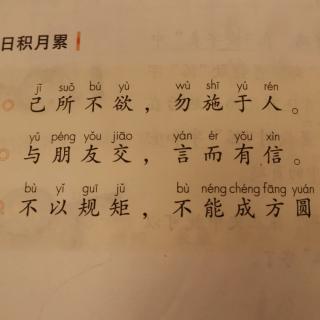 日积月累
jǐ suǒ bú yù wù shī yú rén
己所不欲，勿施于人。
yǔ péng yǒu jiāo yán ér yǒu xìn
与朋友交，言而有信。
bù yǐ guī jǔ bù néng chéng fāng yuán
不以规矩，不能成方圆